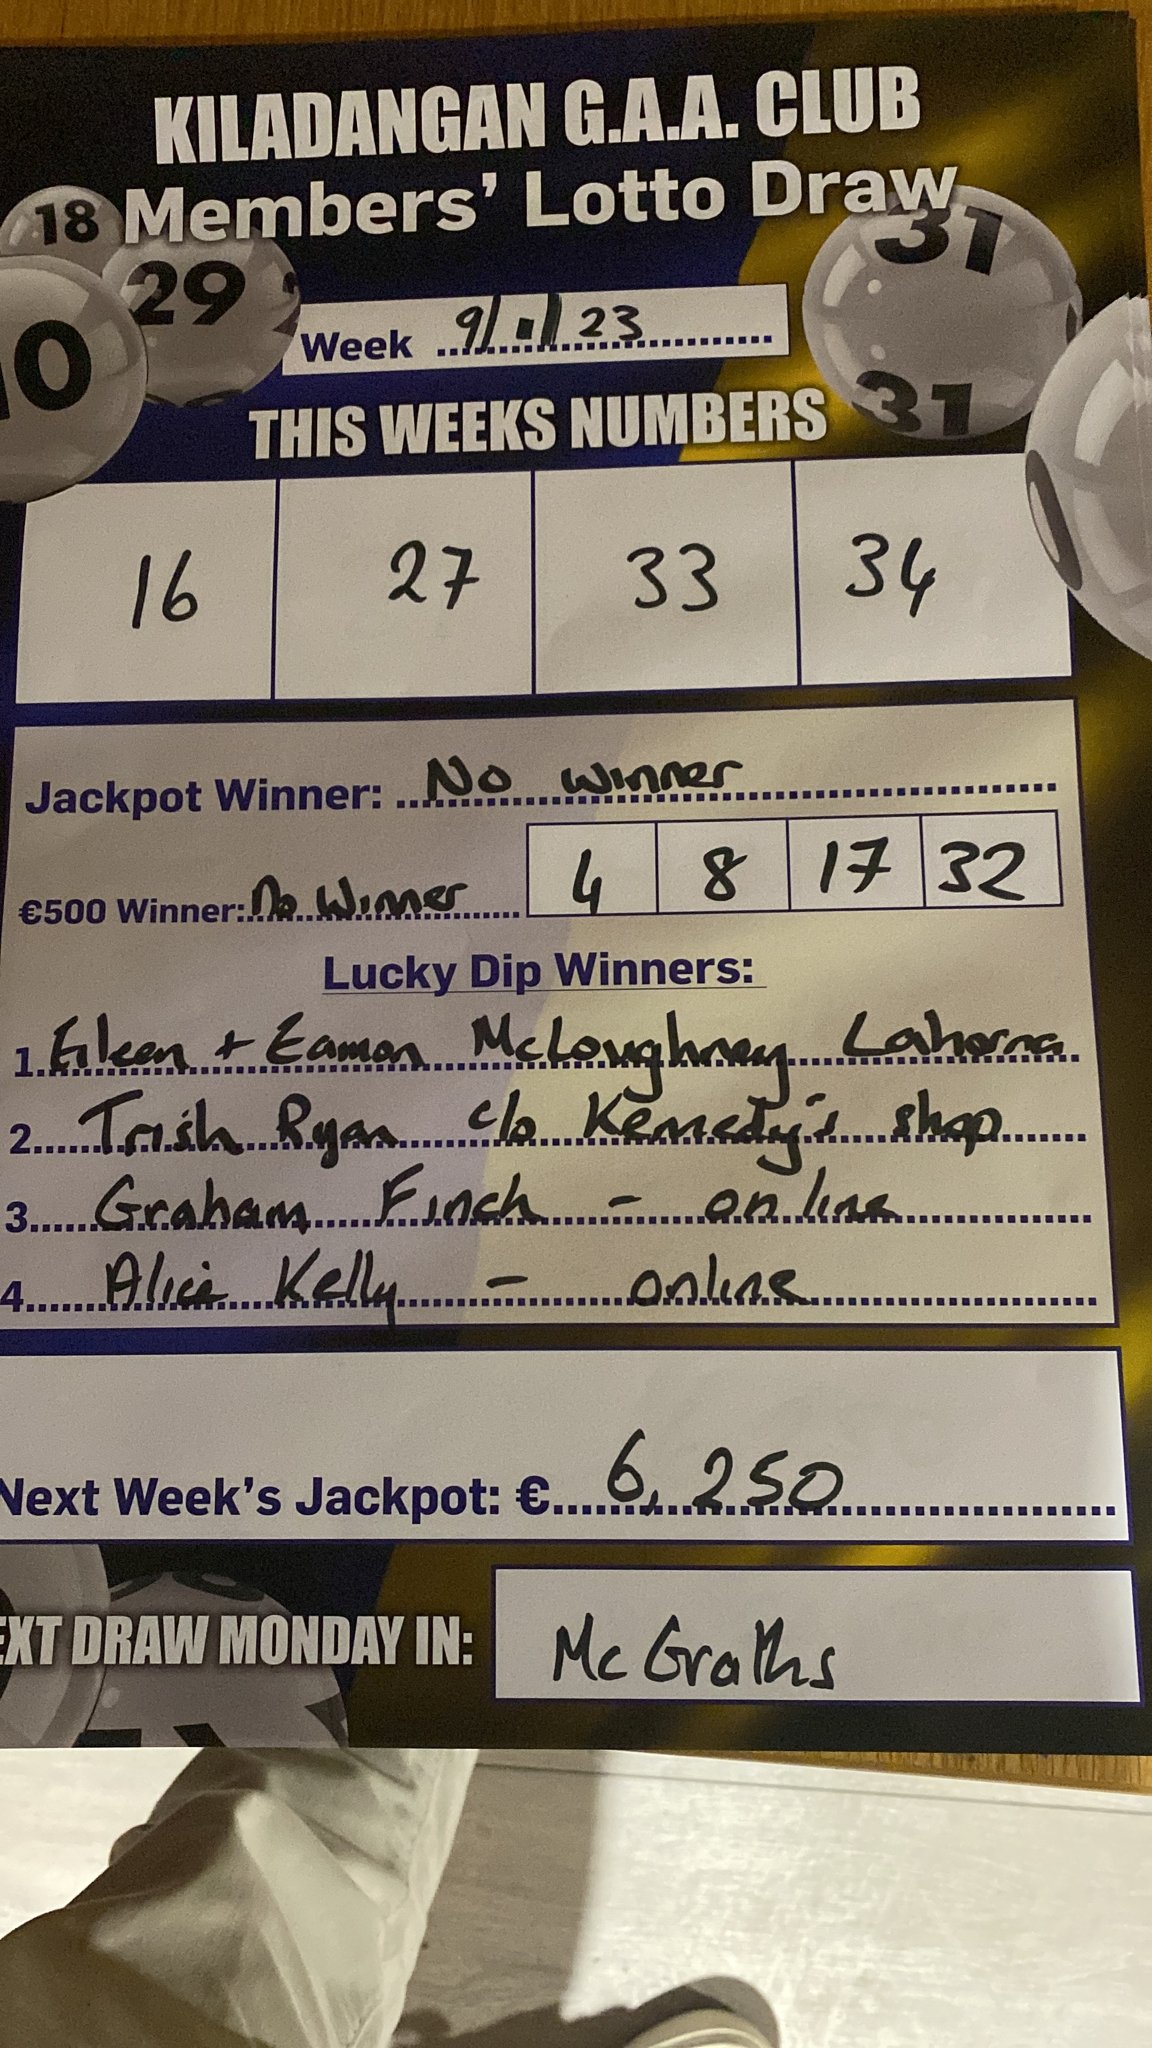 KILADANGAN G.A.A. CLUB
Members' Lotto Draw
18
29
31
31
10
Week 9/.1/23
THIS WEEKS NUMBERS
16 27 33 34
Jackpot Winner: No winner
€500 Winner: No Winner 4 8 17 32
Lucky Dip Winners:
1. Eileen + Eamon McLoughney Lahorna
2. Trish Ryan c/o Kennedy's shop
3. Graham Finch - online
4. Alice Kelly - online
Next Week's Jackpot: € 6,250
EXT DRAW MONDAY IN: McGraths